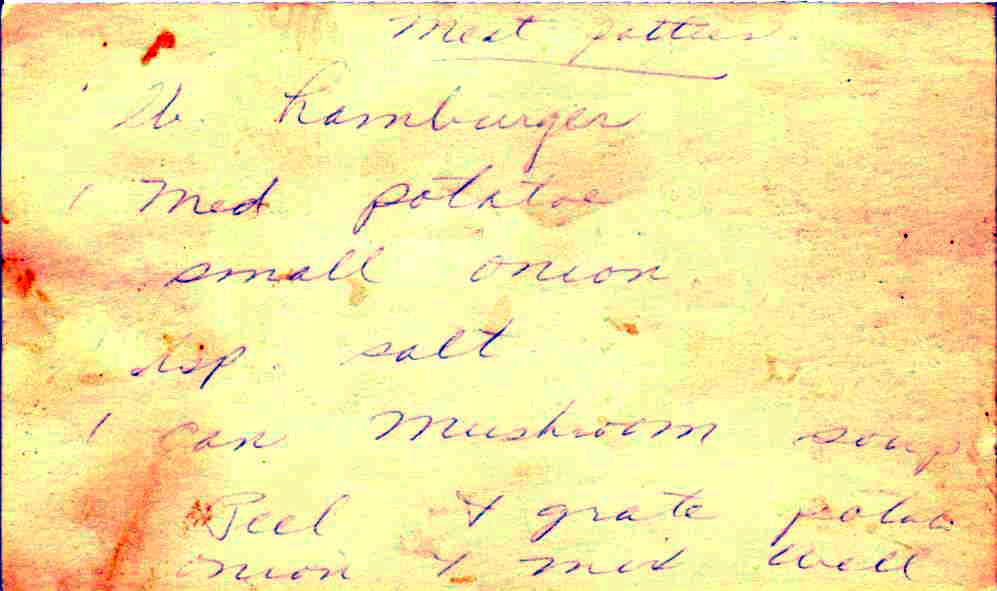 Meat patties
1 lb. hamburger
1 Med potatoe
small onion
tsp. salt
1 can Mushroom soup
Peel & grate potato
onion & mix well